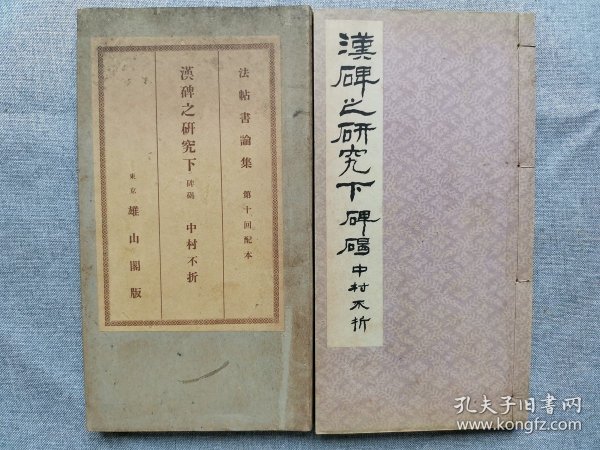 法帖書論集 第十回配本
漢碑之研究下 碑碣 中村不折
東京 雄山閣版
漢碑之研究下 碑碣 中村不折
孔夫子旧书网
www.kongfz.com